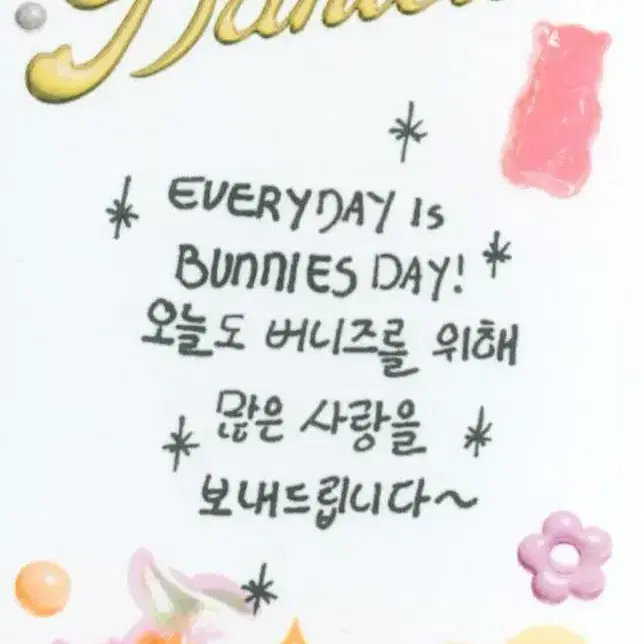 EVERYDAY IS
BUNNIES DAY!
오늘도 버니즈를 위해
많은 사랑을
보내드립니다~